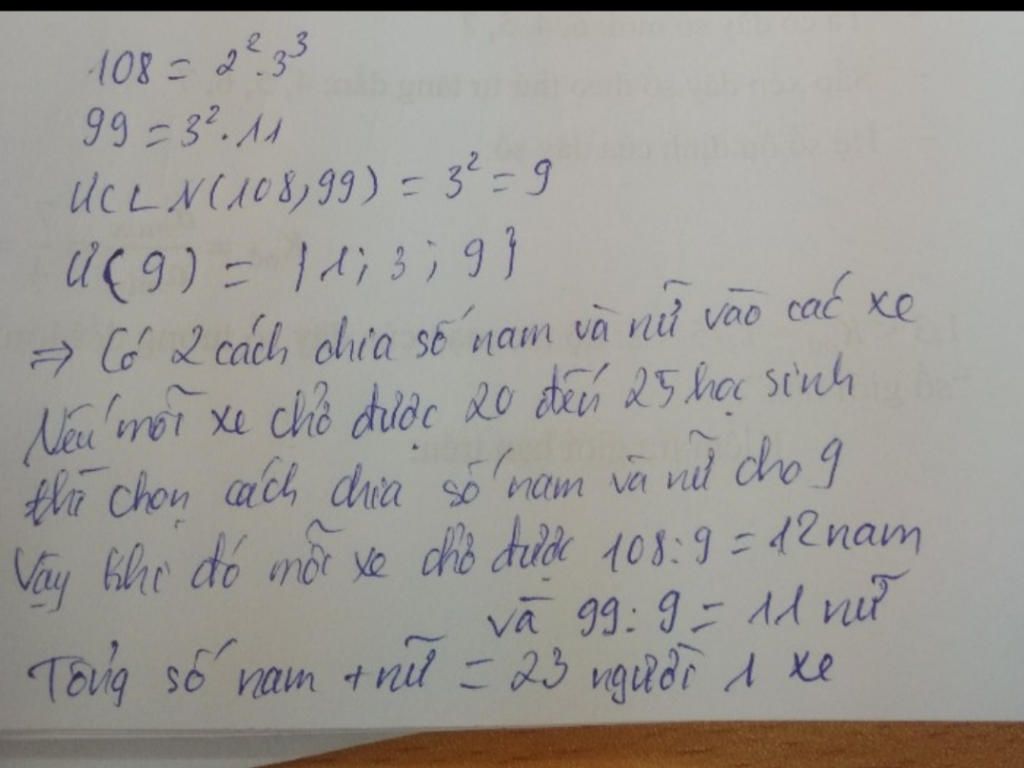 108 = 2².3³
99 = 3².11
ƯCLN(108,99) = 3² = 9
Ư(9) = {1; 3; 9}
⇒ Có 2 cách chia số nam và nữ vào các xe
Nếu mỗi xe chở được 20 đến 25 học sinh
thì chọn cách chia số nam và nữ cho 9
Vậy khi đó mỗi xe chở được 108:9 = 12 nam
và 99:9 = 11 nữ
Tổng số nam + nữ = 23 người 1 xe